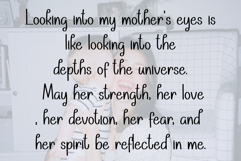 Looking into my mother's eyes is
like looking into the
depths of the universe.
May her strength, her love
, her devotion, her fear, and
her spirit be reflected in me.